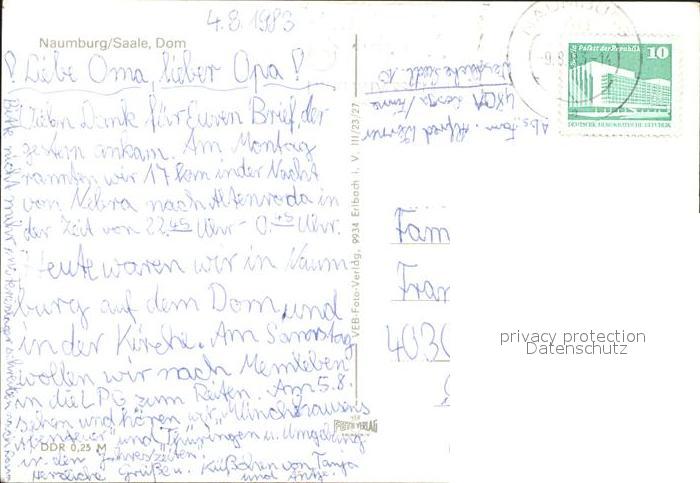 4.8.1983
Naumburg/Saale, Dom
! Liebe Oma, lieber Opa !
Vielen Dank für Euren Brief der
gestern ankam. Am Montag
rannten wir 17 km in der Nacht
von Nebra nach Altenroda in
der Zeit von 22.45 Uhr - 0.45 Uhr.
Heute waren wir in Naum-
burg auf dem Dom und
in der Kirche. Am Samstag
wollen wir nach Memleben
in die LPG zum Reiten. Am 5.8.
sehen und hören wir "Münchhausens
Abenteuer" und "Thüringen u. Umgebung
in den Jahreszeiten".
Herzliche Grüße u. Küßchen von Tanja
und Antje.
DDR 0,25 M
VEB-Foto-Verlag, 9934 Erlbach i. V. III/23/27
FOTO VERLAG
Abs. Fam. Alfred Werner
NAUMBURG
Palast der Republik
10
DEUTSCHE DEMOKRATISCHE REPUBLIK
Fam
Fran
4030
privacy protection
Datenschutz